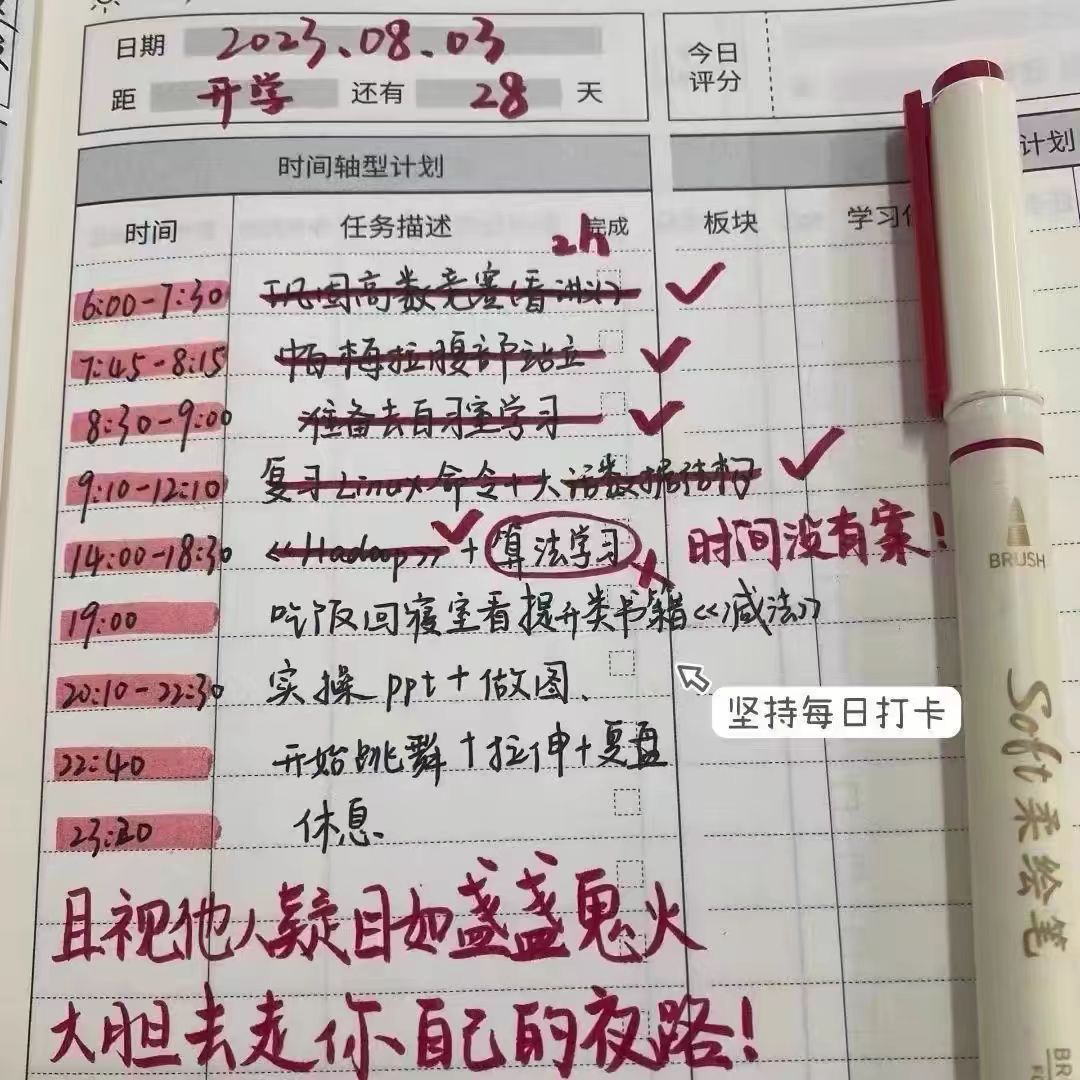 日期 2023.08.03
距 开学 还有 28 天
今日
评分
时间轴型计划
计划
时间 任务描述 完成 板块
2h
6:00-7:30 巩固高数竞赛(看讲义)
7:45-8:15 帕梅拉腹部站立
8:30-9:00 准备去自习室学习
9:10-12:10 复习Linux命令+大话数据结构
14:00-18:30 《Hadoop》+算法学习 时间没有案!
19:00 吃饭回寝室看提升类书籍《减法》
20:10-22:30 实操ppt+做图.
坚持每日打卡
22:40 开始跳舞+拉伸+复盘
23:20 休息.
且视他人疑目如盏盏鬼火
大胆去走你自己的夜路!
BRUSH
Soft柔绘笔